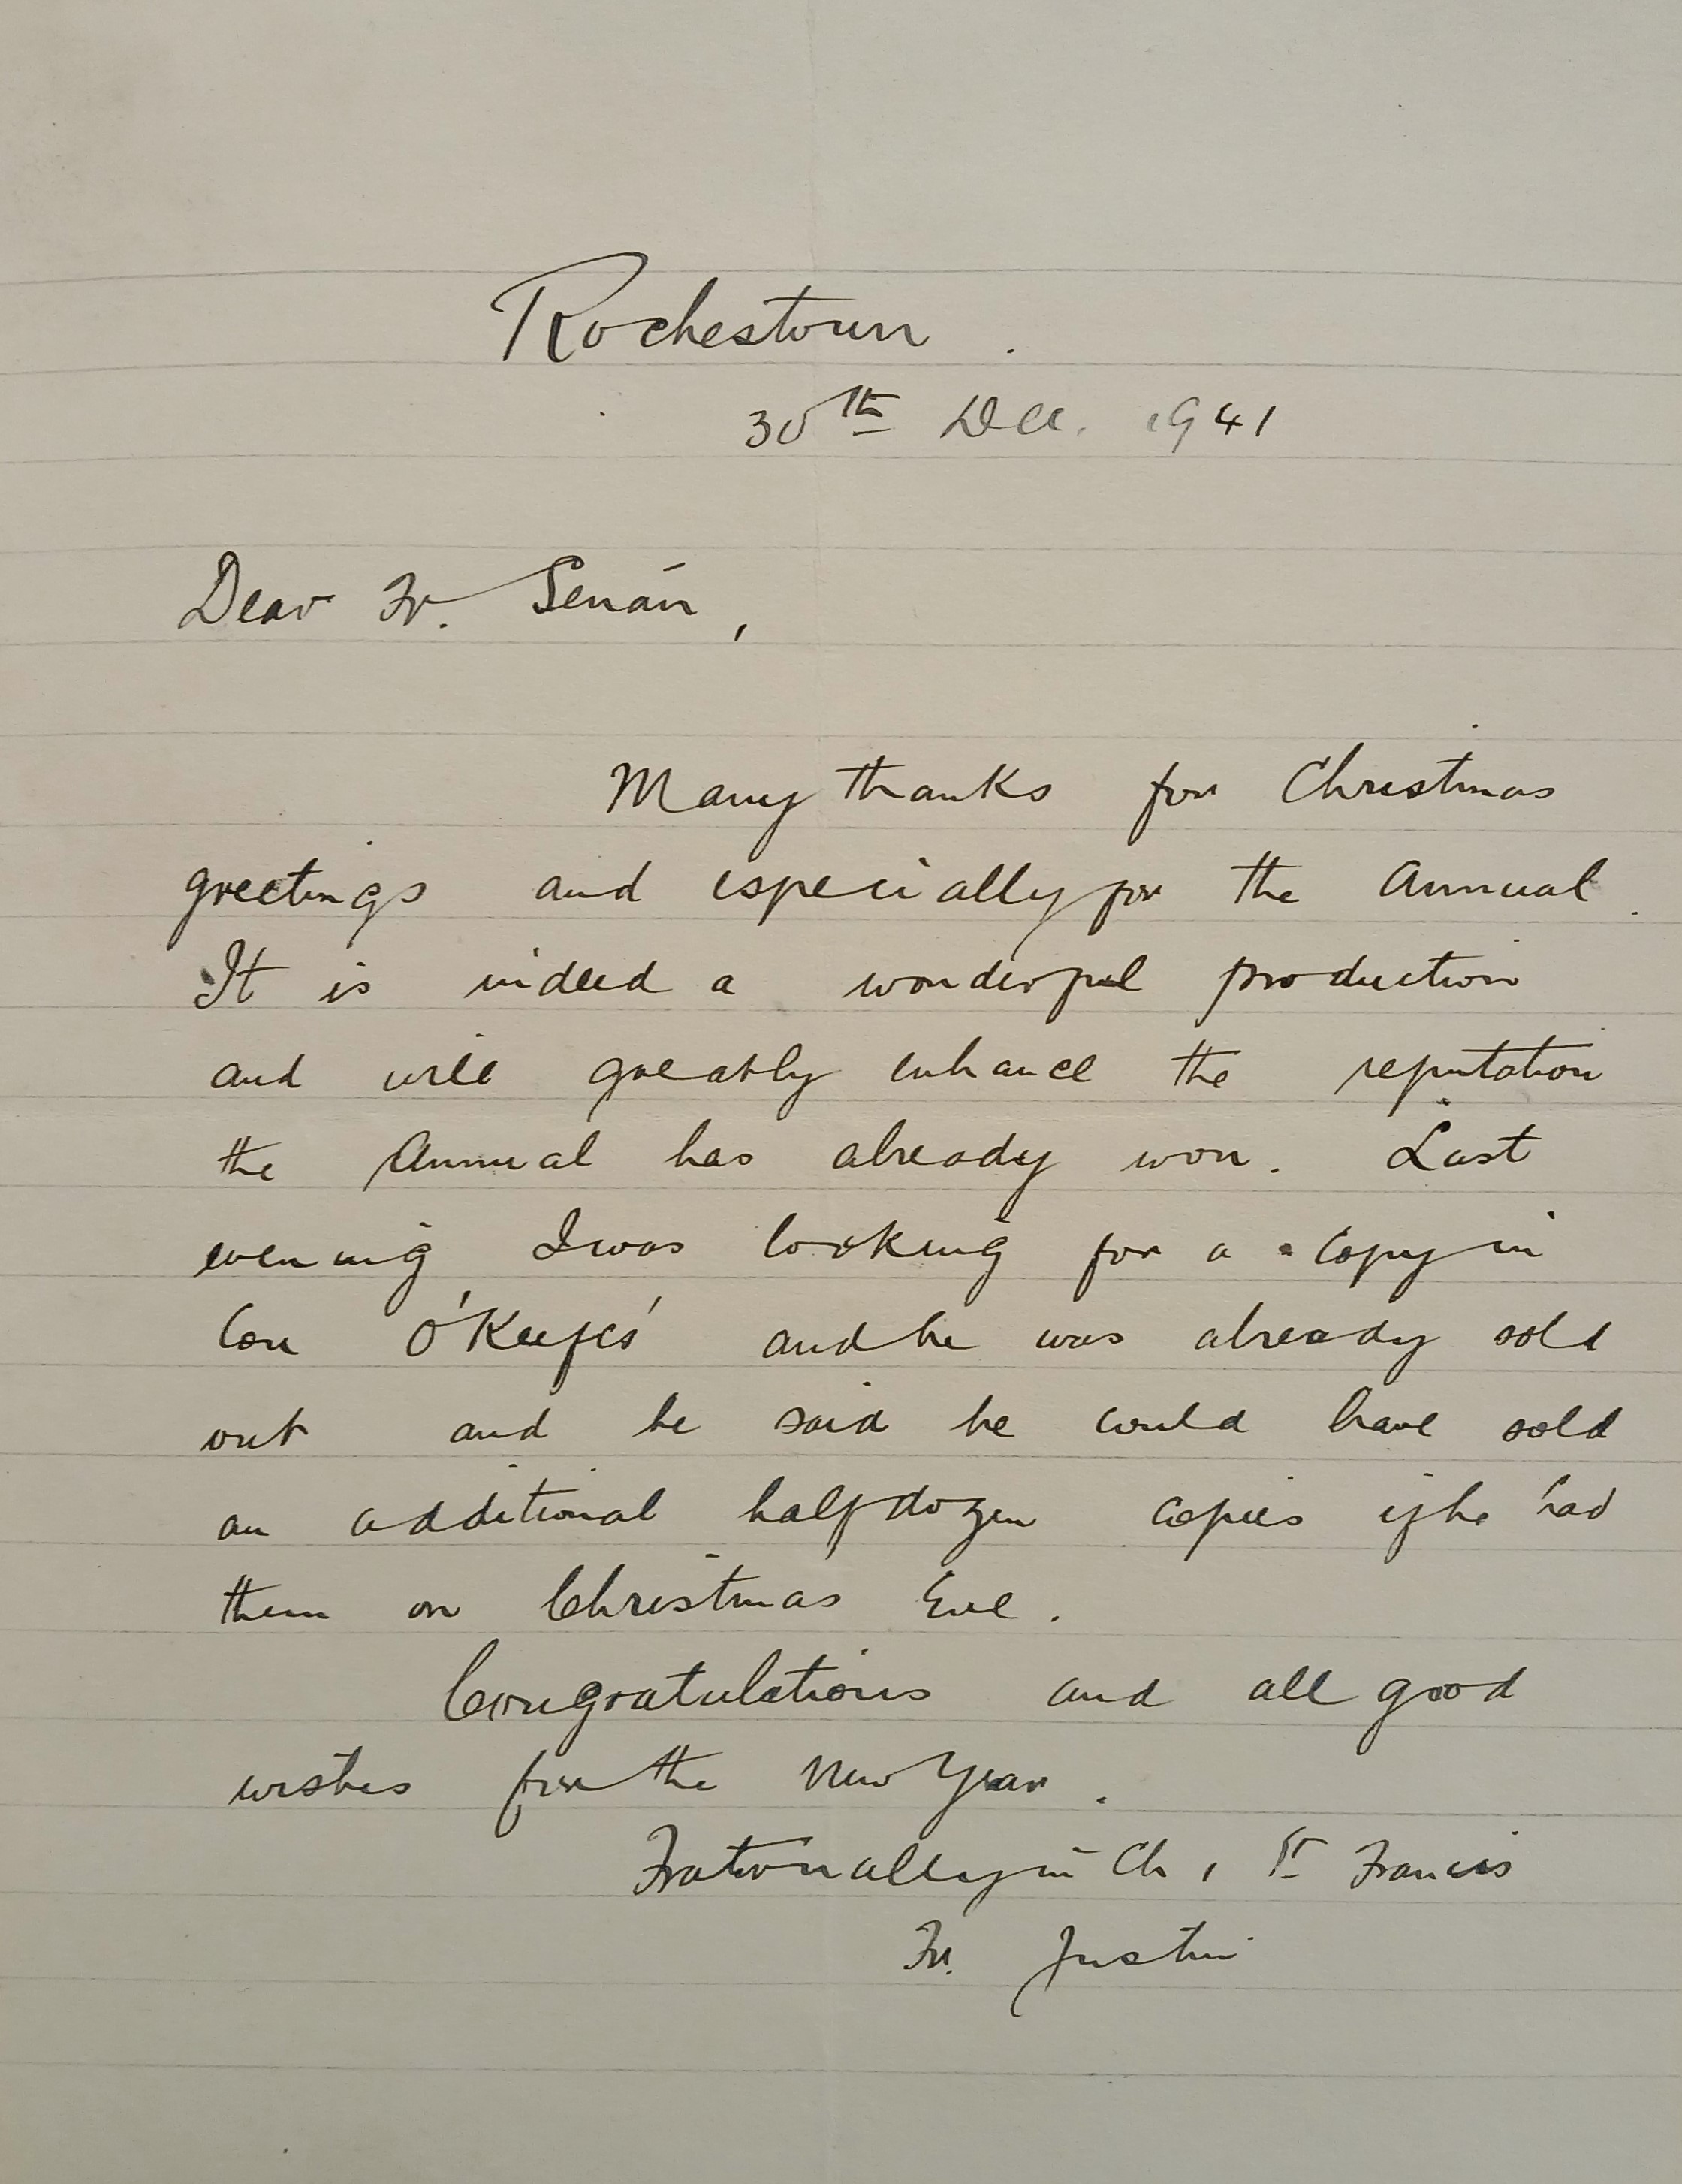 Rochestown.
30th Dec. 1941
Dear Fr. Senán,
Many thanks for Christmas
greetings and especially for the Annual.
It is indeed a wonderful production
and will greatly enhance the reputation
the Annual has already won. Last
evening I was looking for a copy in
Con O'Keefes' and he was already sold
out and he said he could have sold
an additional half dozen copies if he had
them on Christmas Eve.
Congratulations and all good
wishes for the New Year.
Fraternally in Ch, St Francis
Fr. Justin